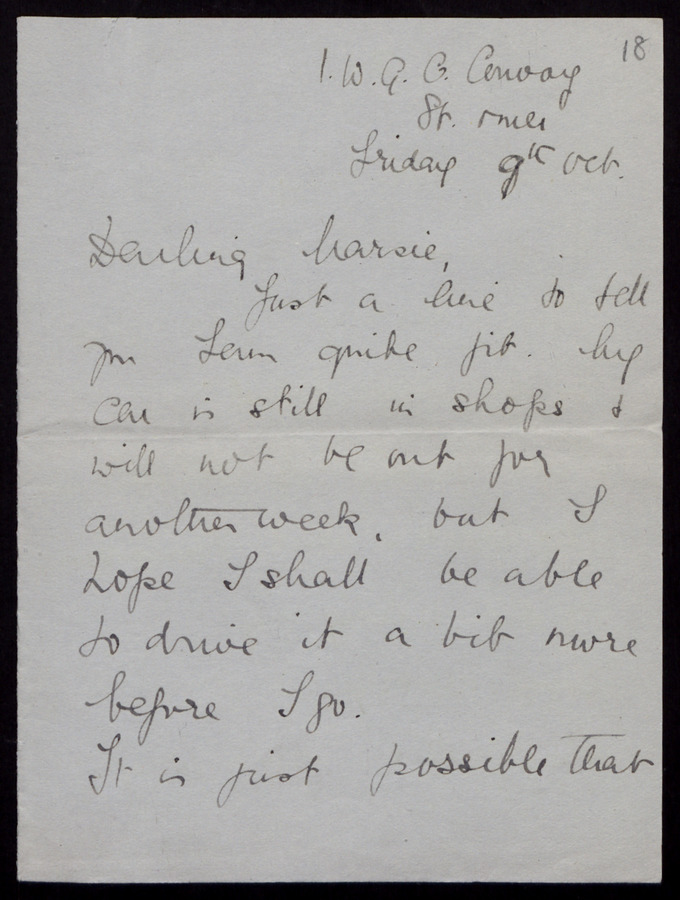 18
1. W. A. C. Convoy
St. Omer
Friday 9th Oct.
Darling Marsie,
Just a line to tell
you I am quite fit. My
car is still in shops &
will not be out for
another week, but I
hope I shall be able
to drive it a bit more
before I go.
It is just possible that